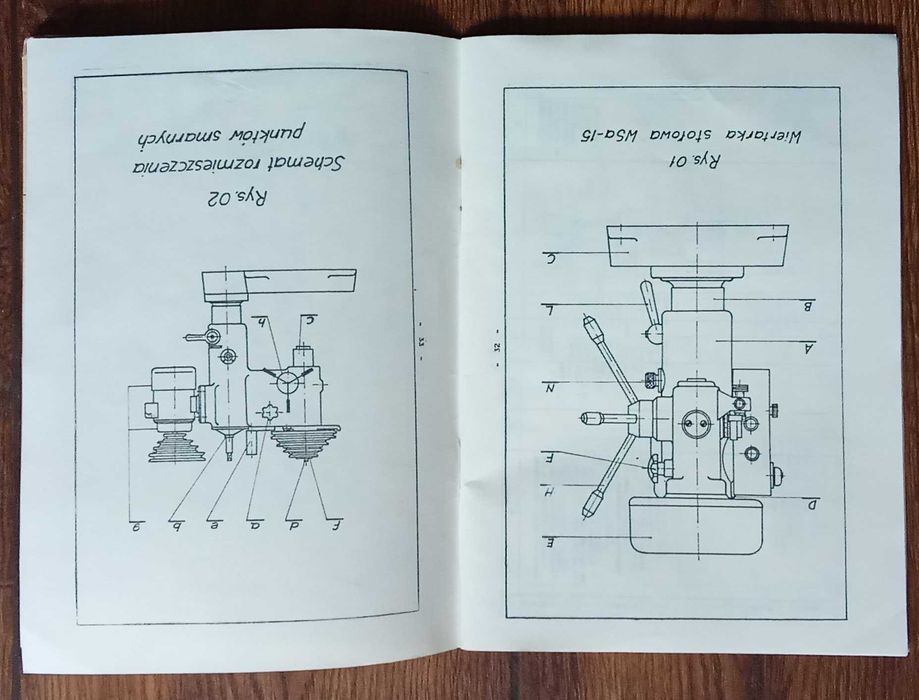 E
D
H
F
N
A
L
B
C
Rys. 01
Wiertarka stołowa WSa-15
- 32 -
f d a e b g
c h
Rys. 02
Schemat rozmieszczenia
punktów smarnych
- 33 -